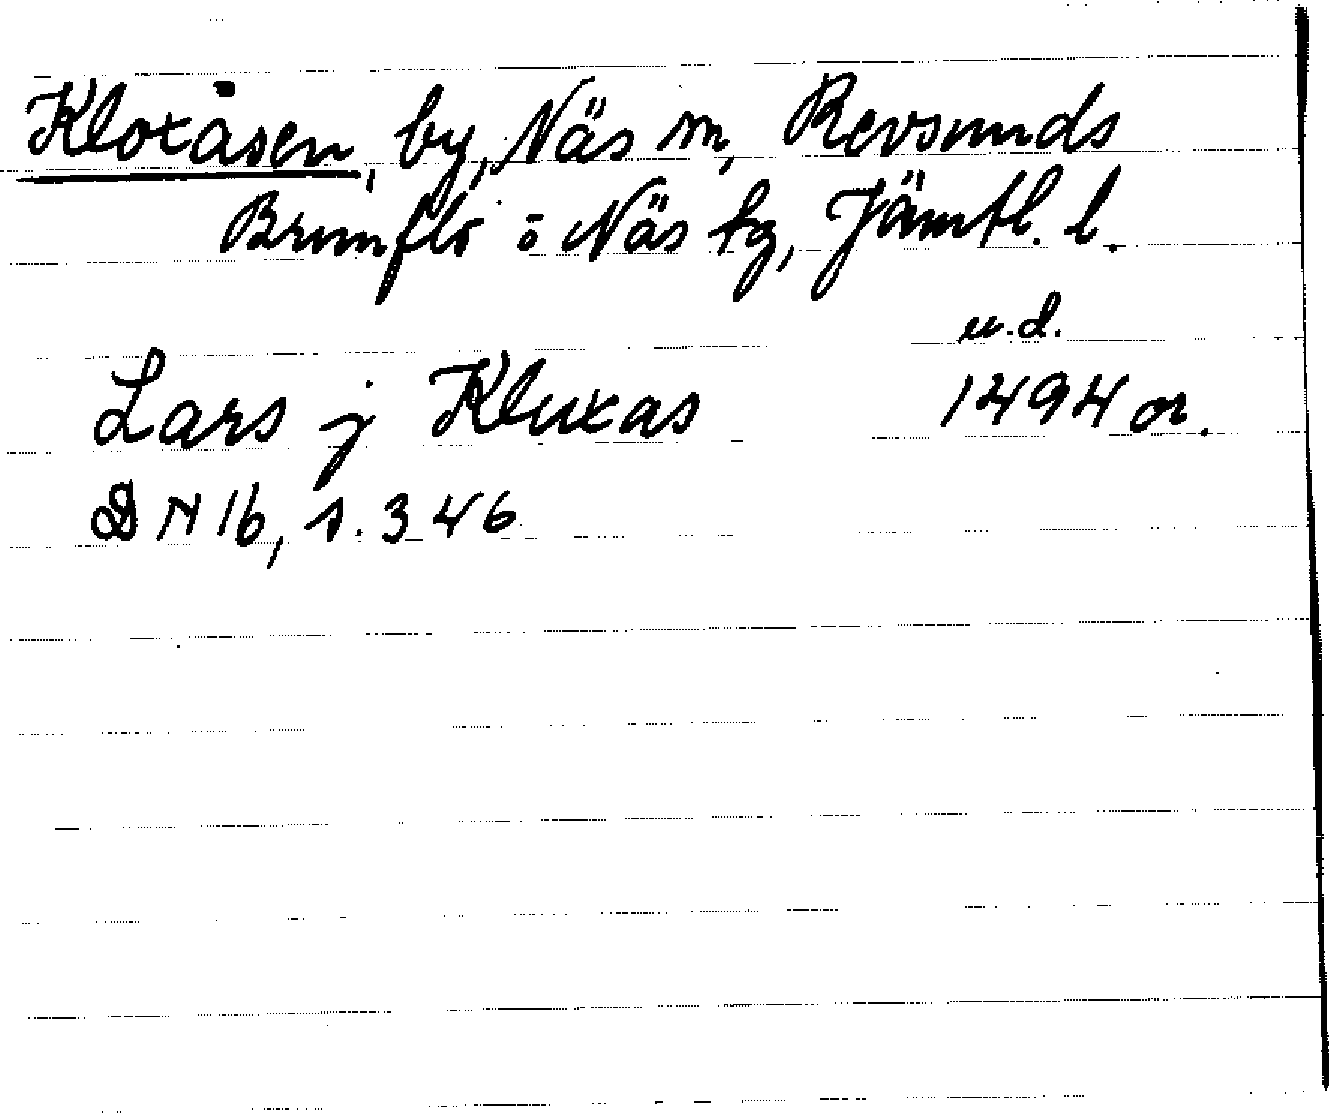 Kloxåsen, by, Näs sn, Revsunds
Brunflo o Näs tg, Jämtl. l.
u.d.
Lars j Kluxas 1494 or.
DN 16, s. 346